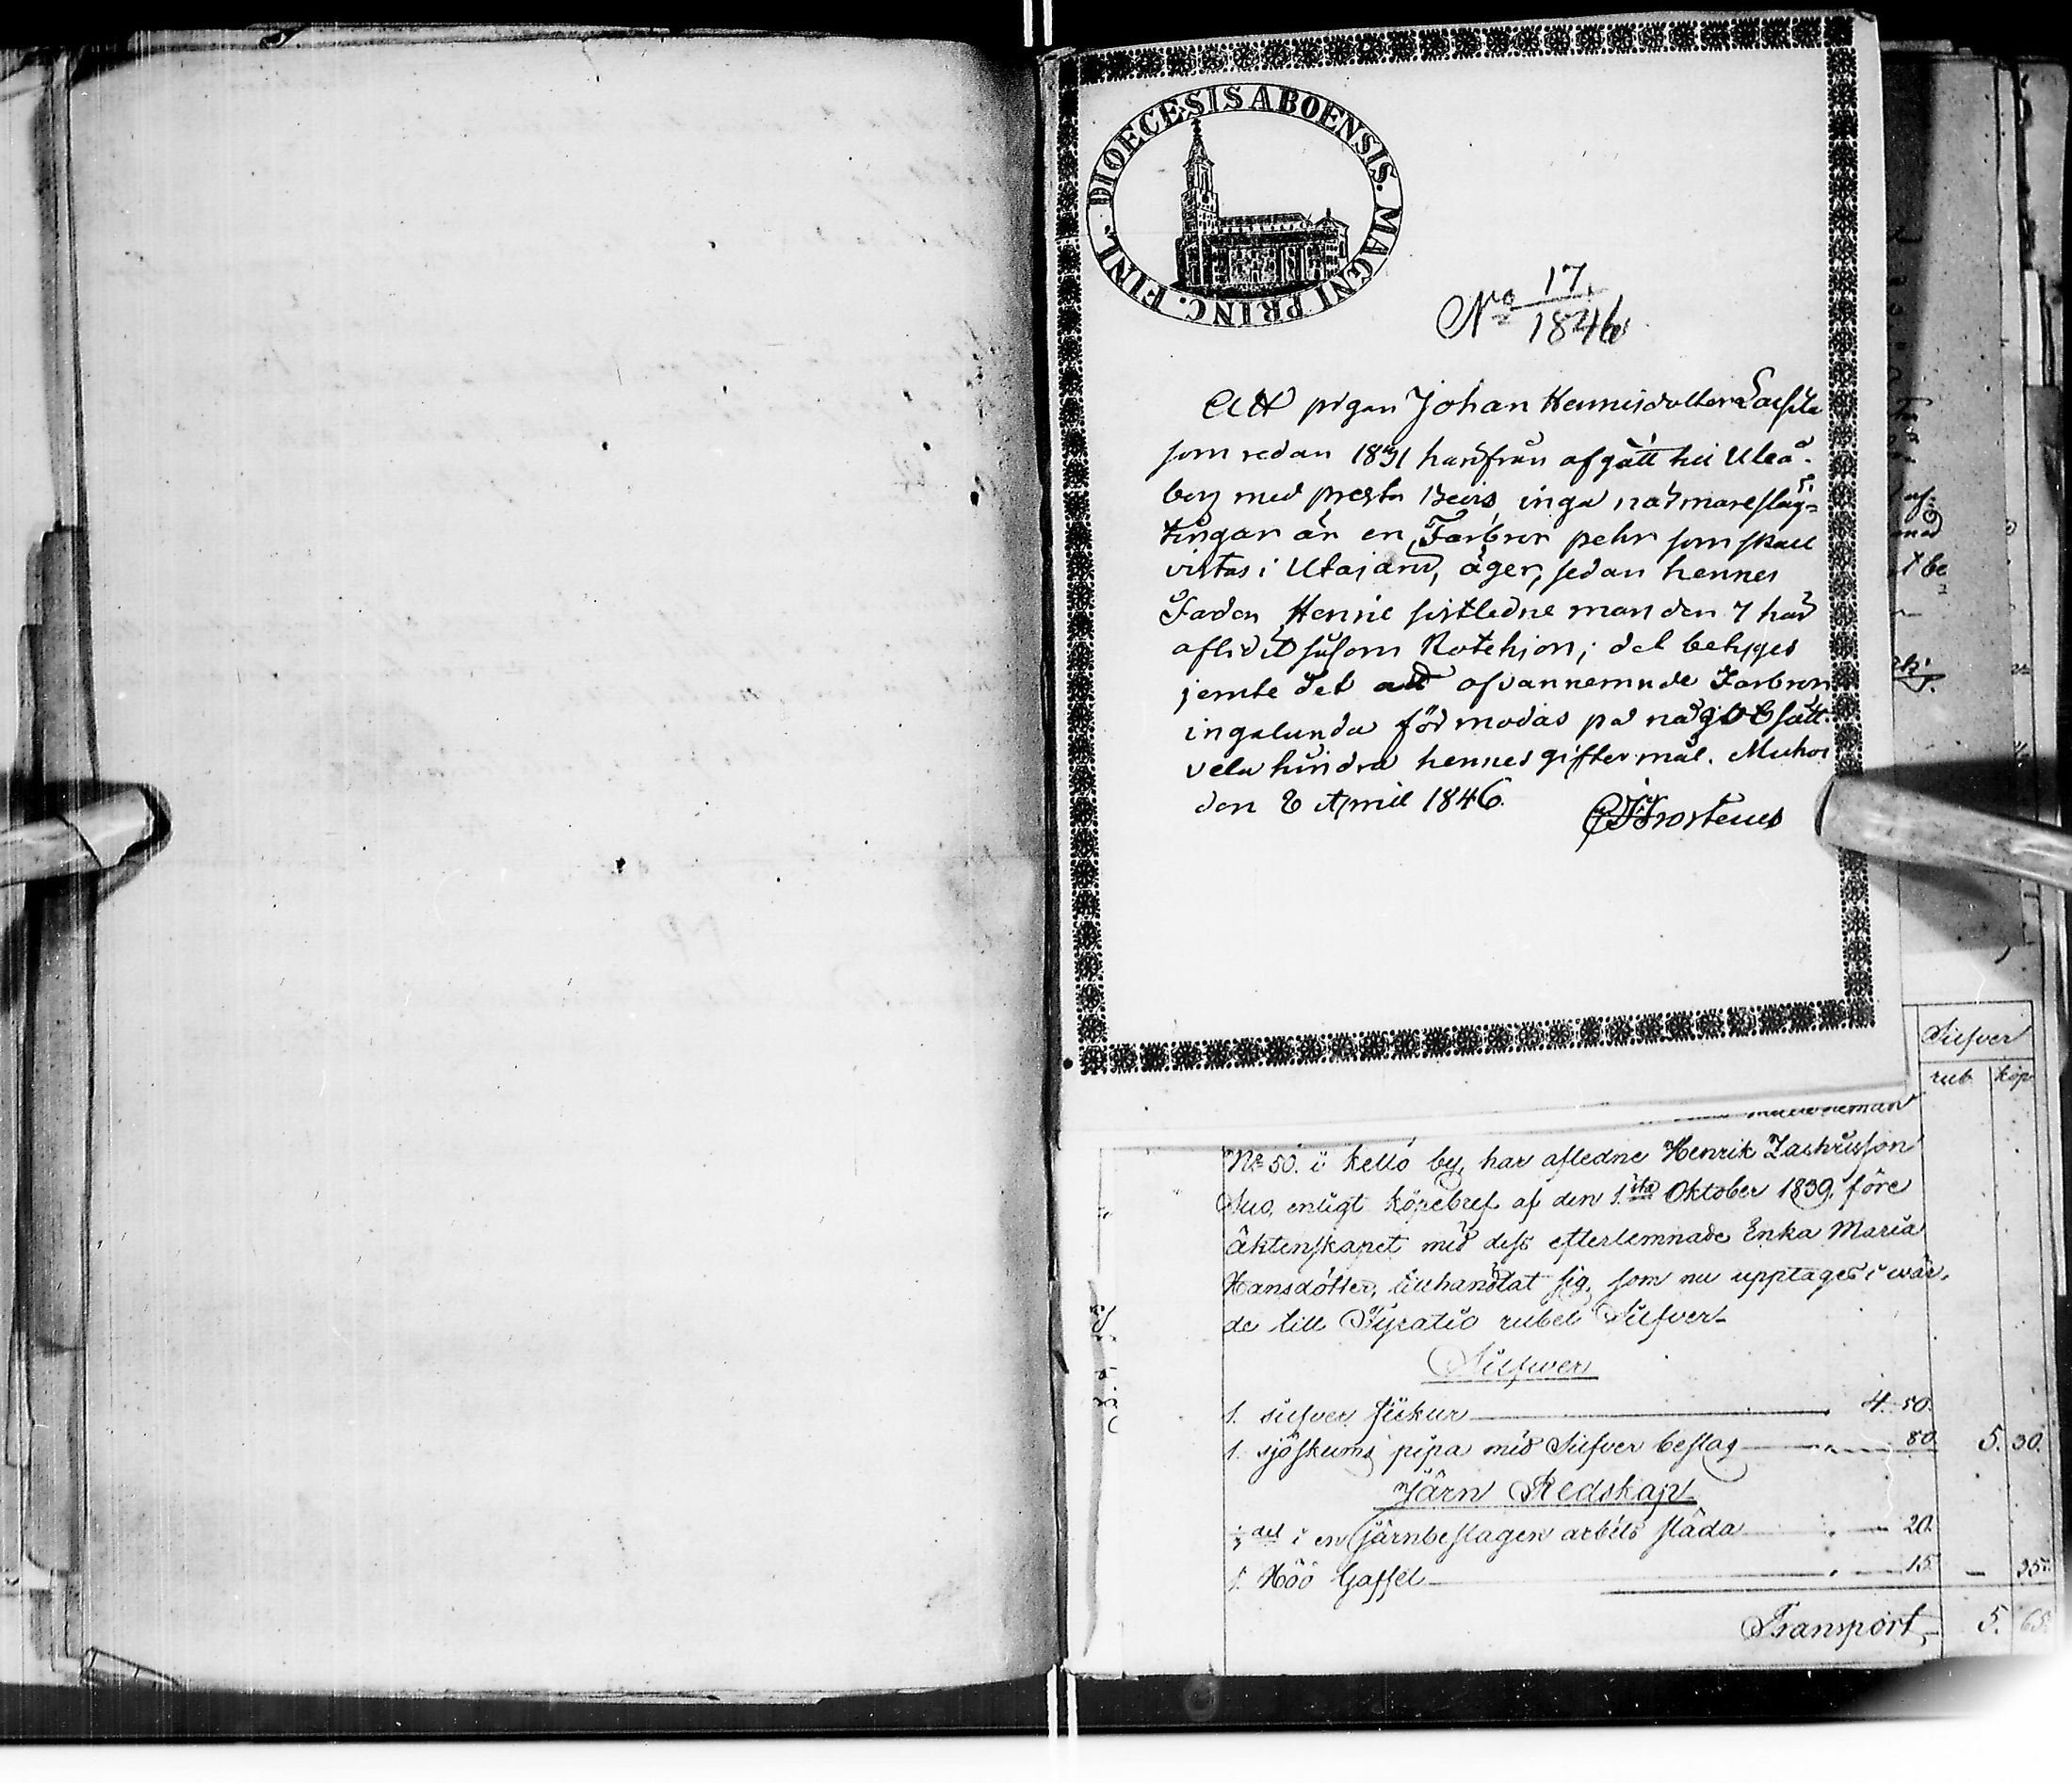 DIOECESIS ABOENSIS. MAGNI PRINC. FINL.
No 17. / 1846
Att pigan Johan Henricsdotter
som redan 1831 härifrån afgått till Uleå-
borg med presta Bevis inga närmare släg-
tingar än en Farbror pehr som skall
vistas i Utajärvi, äger, sedan hennes
Fader Henric sistledne mars den 7 här
aflidit såsom Rotehjon; det betyges
jemte det att ofvannemnde Farbror
ingalunda förmodas på något sätt
vela hindra hennes giftermål. Muhos
den 8 April 1846.
Frosterus
Silfver
rub. kop
No 50. i Kello by, har afledne Henrik Zachrisson
Suo, enligt köpebref af den 1sta Oktober 1839, före
äktenskapet med dess efterlemnade Enka Maria
Hansdotter, tillhandlat sig, som nu upptages i wär-
de till Fyratio rubel Silfver
Silfwer
1. silfver fickur 4. 50.
1. sjöskums pipa med Silfver beslag 80. 5. 30.
Järn Redskap
del i en järnbeslagen arbets släda 20.
1. Höö Gaffel 15. 35.
Transport 5. 65.